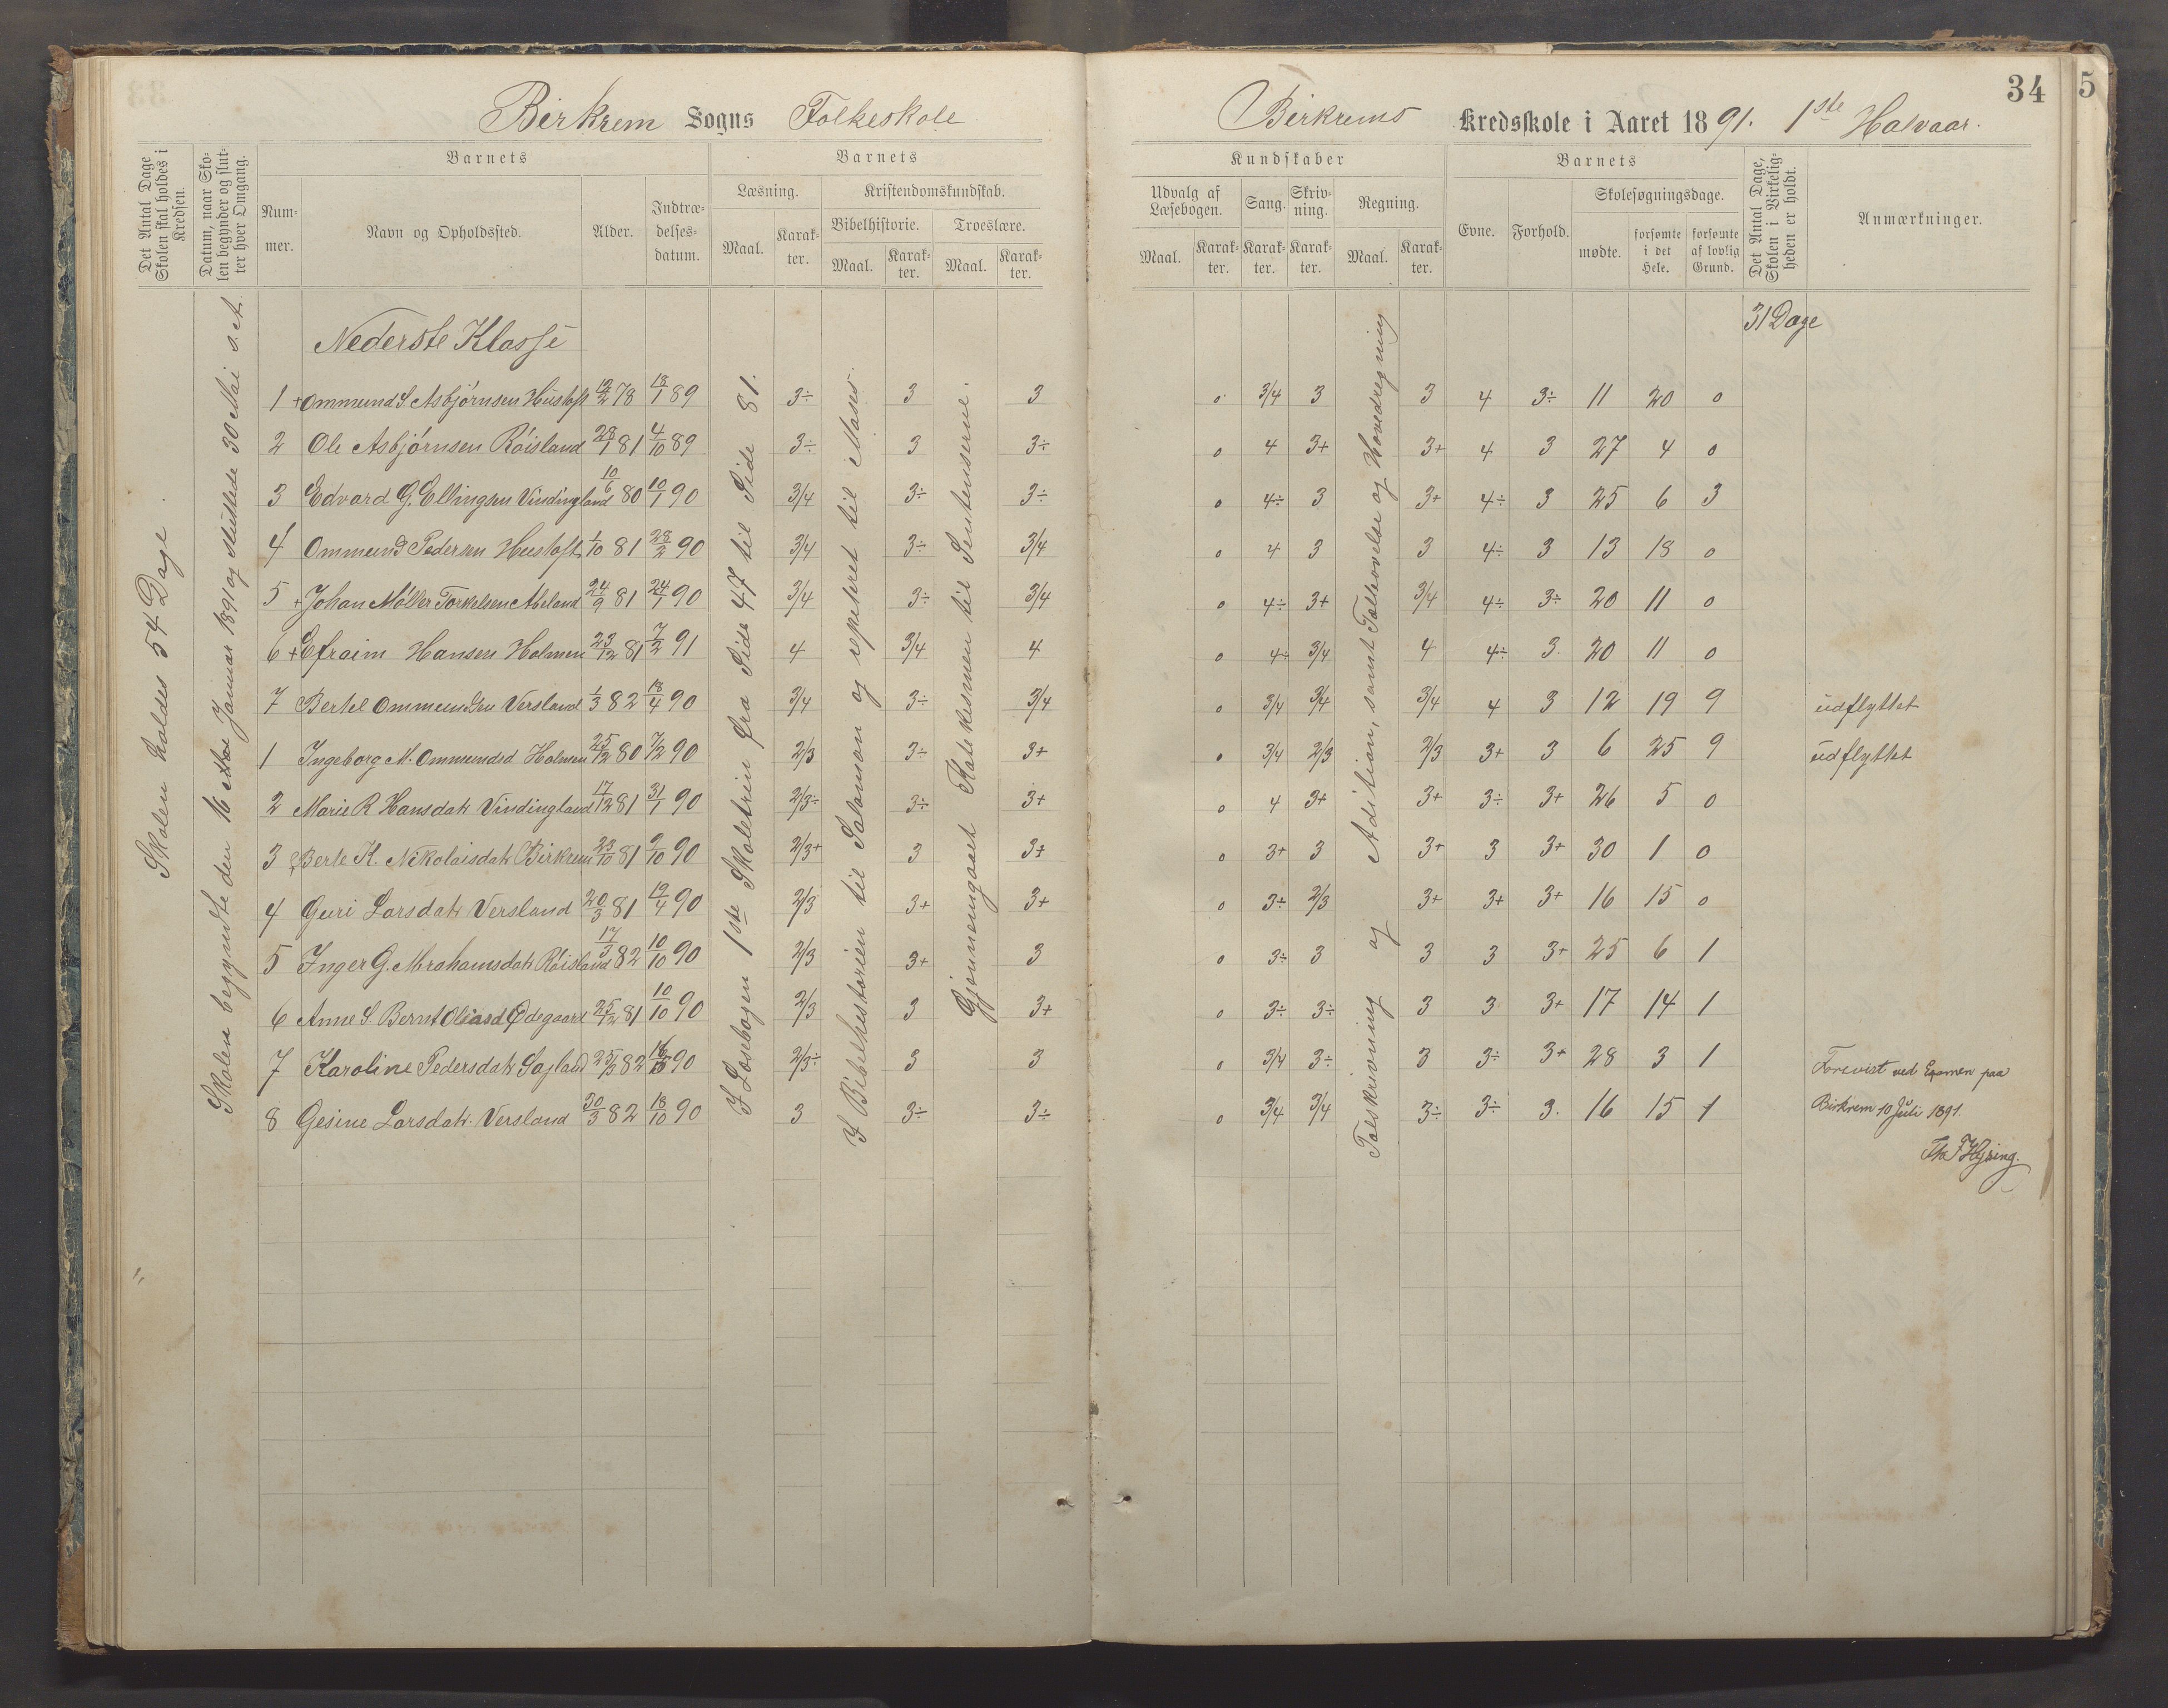 34
5
Birkrem Sogns Folkeskole
Birkrems Kredsskole i Aaret 1891. 1ste Halvaar.
Det Antal Dage Skolen skal holdes i Kredsen.
Datum, naar Skolen begynder og slutter hver Omgang.
Barnets
Nummer.
Navn og Opholdssted.
Alder.
Indtrædelsesdatum.
Barnets
Læsning.
Maal.
Karakter.
Kristendomskundskab.
Bibelhistorie.
Maal.
Karakter.
Troeslære.
Maal.
Karakter.
Kundskaber
Udvalg af Læsebogen.
Maal.
Karakter.
Sang.
Karakter.
Skrivning.
Karakter.
Regning.
Maal.
Karakter.
Barnets
Evne.
Forhold.
Skolesøgningsdage.
mødte.
forsømte i det Hele.
forsømte af lovlig Grund.
Det Antal Dage, Skolen i Virkeligheden er holdt.
Anmærkninger.
Skolen holdes 54 Dage.
Skolen begyndte den 16 Januar 1891 og sluttede 30 Mai s. A.
I Læsebogen 1ste Skoletrin fra Side 47 til Side 81.
I Bibelhistorien til Salomon og repeteret til Moses.
Gjennemgaaet Katekismen til Sentenserne.
Talskrivning og Adition, samt Taløvelse og Hovedregning
31 Dage
Nederste Klasse
1 + Ommund S. Asbjørnsen Hustoft 12/2 78 18/1 89 3÷ 3 3 0 3/4 3 3 4 3÷ 11 20 0
2 Ole Asbjørnsen Röisland 28/1 81 4/10 89 3÷ 3 3÷ 0 4 3+ 3+ 4 3 27 4 0
3 Edvard G. Ellingsen Vindingland 10/6 80 10/1 90 3/4 3÷ 3÷ 0 4÷ 3 3+ 4÷ 3 25 6 3
4 Ommund Pedersen Hustoft 1/10 81 28/2 90 3/4 3÷ 3/4 0 4 3 3 4÷ 3 13 18 0
5 + Johan Möller Torkelsen Abeland 24/9 81 24/1 90 3/4 3÷ 3/4 0 4÷ 3+ 3/4 4÷ 3÷ 20 11 0
6 + Efraim Hansen Holmen 23/12 81 7/2 91 4 3/4 4 0 4÷ 3/4 4 4÷ 3. 20 11 0
7 Bertel Ommundsen Versland 1/3 82 18/4 90 3/4 3÷ 3/4 0 3/4 3/4 3/4 4 3 12 19 9 udflyttet
1 Ingeborg M. Ommundsd Holmen 25/12 80 7/2 90 2/3 3÷ 3+ 0 3/4 2/3 2/3 3+ 3 6 25 9 udflyttet
2 Marie R Hansdatr Vindingland 17/12 81 31/1 90 2/3÷ 3÷ 3+ 0 4 3+ 3+ 3÷ 3+ 26 5 0
3 Berte K. Nikolaisdatr Birkrem 23/10 81 9/10 90 2/3+ 3 3+ 0 3+ 3 3+ 3 3+ 30 1 0
4 Guri Larsdatr Versland 20/3 81 19/4 90 2/3 3+ 3+ 0 3÷ 2/3 3+ 3+ 3+ 16 15 0
5 Inger G. Abrahamsdatr Röisland 17/3 82 10/10 90 2/3 3+ 3 0 3÷ 3 3 3 3+ 25 6 1
6 Anne S. Bernt Oliasd Ødegaard 25/12 81 10/10 90 2/3 3 3+ 0 3÷ 3÷ 3 3 3+ 17 14 1
7 Karoline Pedersdatr Sagland 25/3 82 90 2/3÷ 3 3 0 3/4 3÷ 3 3÷ 3+ 28 3 1
8 Gesine Larsdatr. Versland 30/3 82 18/10 90 3 3÷ 3÷ 0 3/4 3/4 3÷ 3÷ 3. 16 15 1
Forevist ved Examen paa
Birkrem 10 Juli 1891.
Hysing.